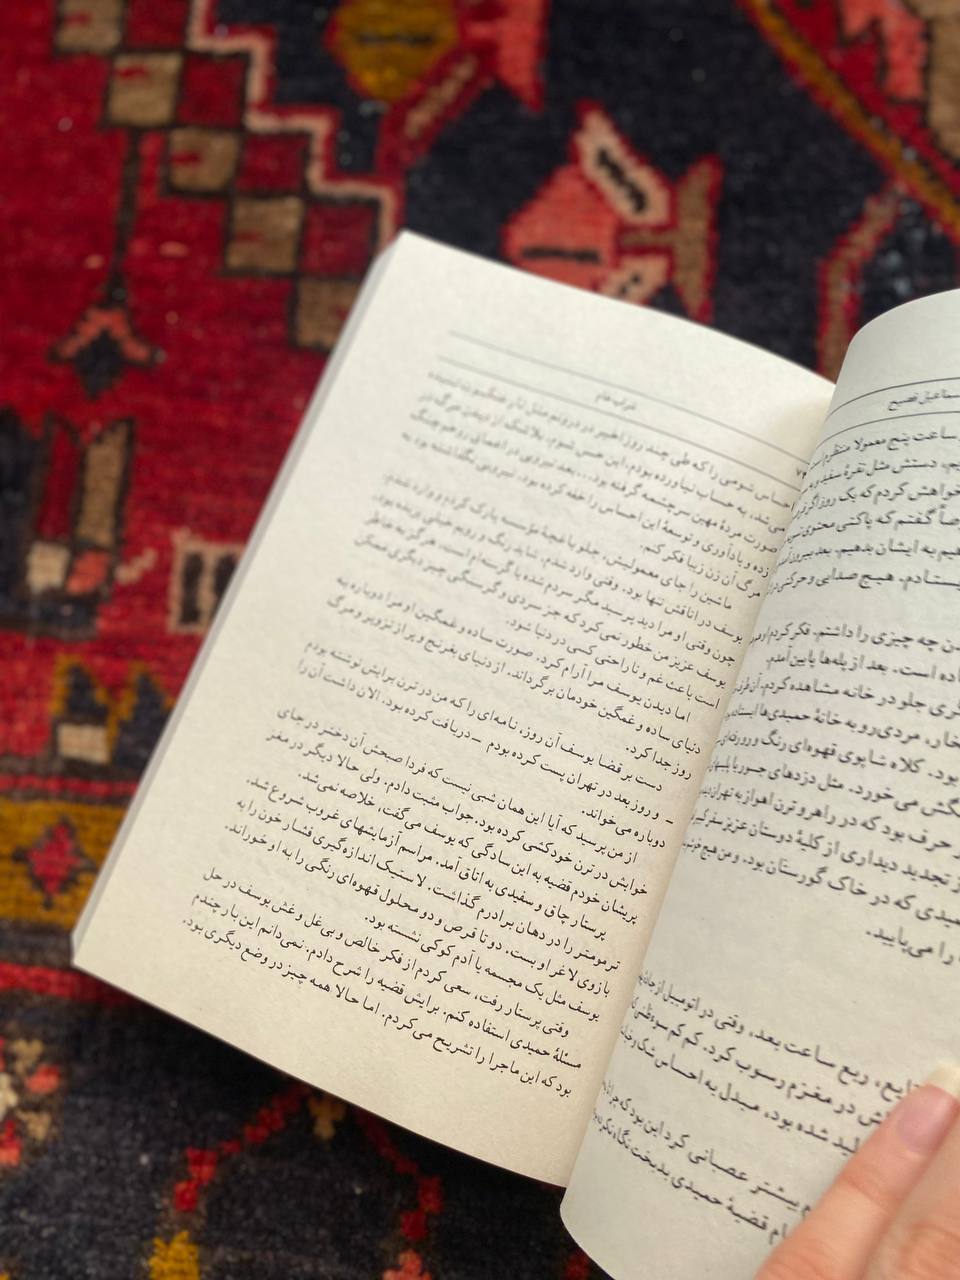 اسماعیل فصیح
ساعت پنج معمولا منتظرم
دستش مثل نقرهٔ سفید
خواهش کردم که یک روز اگر
گفتم که پاکتی محتوی
به ایشان بدهیم. بعد بیرون
ایستادم. هیچ صدایی و حرکتی
چه چیزی را داشتم. فکر کردم
است. بعد از پله‌ها پایین آمدم.
جلو در خانه مشاهده کردم. آن طرف
مردی رو به خانهٔ حمیدی‌ها ایستاده
بود. کلاه شاپوی قهوه‌ای رنگ و رو رفته
می‌خورد. مثل دزدهای
حرف بود که در راهرو ترن اهواز به تهران
تجدید دیداری از کلیهٔ دوستان عزیز سفر
حمیدی که در خاک گورستان بود، و من هیچ
را می‌یابید.
ربع ساعت بعد، وقتی در اتومبیل از
در مغزم رسوب کرد. کم کم سوءظنی
شده بود، مبدل به احساس شک و
بیشتر عصبانی کرد این بود که چرا
قضیهٔ حمیدی بدبخت نگاه نکرده
شراب خام
احساس شومی را که طی چند روز اخیر در درونم مثل تار عنکبوت تنیده
می‌شد، به حساب نیاورده بودم. این حس شوم، بلاشک از دیدن مرگ در
صورت مردهٔ مهین سرچشمه گرفته بود... بعد نیرویی در اعماق روحم چنگ
زده و یادآوری و توسعهٔ این احساس را خفه کرده بود. نیرویی نگذاشته بود به
مرگ آن زن زیبا فکر کنم.
ماشین را جای معمولیش، جلو باغچهٔ مؤسسه پارک کردم و وارد شدم.
یوسف در اتاقش تنها بود. وقتی وارد شدم، شاید رنگ و رویم خیلی پریده بود،
چون وقتی او مرا دید پرسید مگر سردم شده یا گرسنه‌ام است. هرگز به خاطر
یوسف عزیز من خطور نمی‌کرد که جز سردی و گرسنگی چیز دیگری ممکن
است باعث غم و ناراحتی کسی در دنیا شود.
اما دیدن یوسف مرا آرام کرد. صورت ساده و غمگین او مرا دوباره به
دنیای ساده و غمگین خودمان برگرداند. از دنیای بغرنج و پر از تزویر و مرگ
روز جدا کرد.
دست بر قضا یوسف آن روز، نامه‌ای را که من در ترن برایش نوشته بودم
– و روز بعد در تهران پست کرده بودم – دریافت کرده بود. الان داشت آن را
دوباره می‌خواند.
از من پرسید که آیا این همان شبی نیست که فردا صبحش آن دختر در جای
خوابش در ترن خودکشی کرده بود. جواب مثبت دادم. ولی حالا دیگر در مغز
پریشان خودم قضیه به این سادگی که یوسف می‌گفت، خلاصه نمی‌شد.
پرستار چاق و سفیدی به اتاق آمد. مراسم آزمایشهای غروب شروع شد.
ترمومتر را در دهان برادرم گذاشت. لاستیک اندازه‌گیری فشار خون را به
بازوی لاغر او بست. دو تا قرص و دو محلول قهوه‌ای رنگی را به او خوراند.
یوسف مثل یک مجسمه یا آدم کوکی نشسته بود.
وقتی پرستار رفت، سعی کردم از فکر خالص و بی‌غل و غش یوسف در حل
مسئلهٔ حمیدی استفاده کنم. برایش قضیه را شرح دادم. نمی‌دانم این بار چندم
بود که این ماجرا را تشریح می‌کردم. اما حالا همه چیز در وضع دیگری بود.